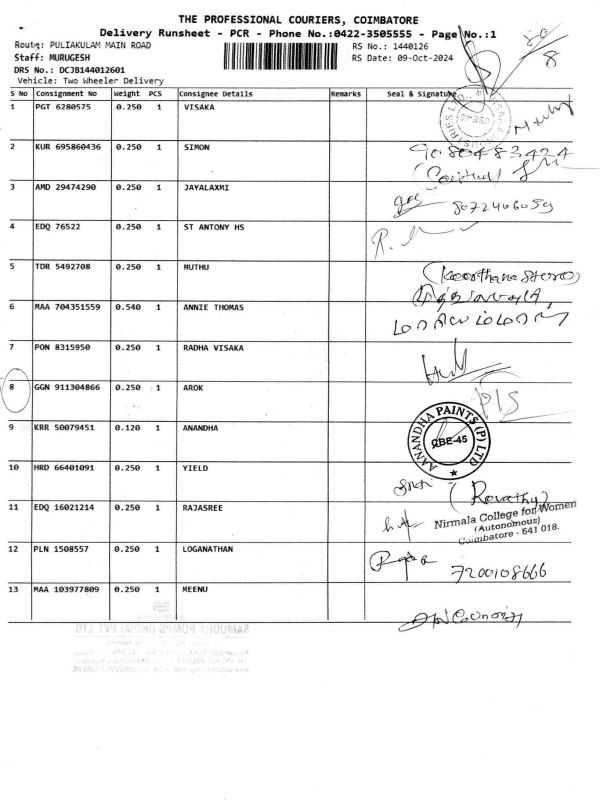 THE PROFESSIONAL COURIERS, COIMBATORE
Delivery Runsheet - PCR - Phone No.:0422-3505555 - Page No.:1
Route: PULIAKULAM MAIN ROAD
RS No.: 1440126
Staff: MURUGESH
RS Date: 09-Oct-2024
DRS No.: DCJB144012601
Vehicle: Two Wheeler Delivery
S No Consignment No Weight PCS Consignee Details Remarks Seal & Signature
1 PGT 6280575 0.250 1 VISAKA
2 KUR 695860436 0.250 1 SIMON
9080483424
3 AMD 29474290 0.250 1 JAYALAXMI
8072406059
4 EDQ 76522 0.250 1 ST ANTONY HS
5 TDR 5492708 0.250 1 MUTHU
6 MAA 704351559 0.540 1 ANNIE THOMAS
7 PON 8315950 0.250 1 RADHA VISAKA
8 GGN 911304866 0.250 1 AROK
9 KRR 50079451 0.120 1 ANANDHA
AANANDHA PAINTS (P) LTD
CBE-45
10 HRD 66401091 0.250 1 YIELD
(Revathy)
11 EDQ 16021214 0.250 1 RAJASREE
Nirmala College for Women
(Autonomous)
Coimbatore - 641 018.
12 PLN 1508557 0.250 1 LOGANATHAN
7200108666
13 MAA 103977809 0.250 1 MEENU